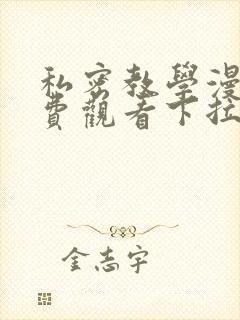 私密教學漫
費觀看下拉
金志宇